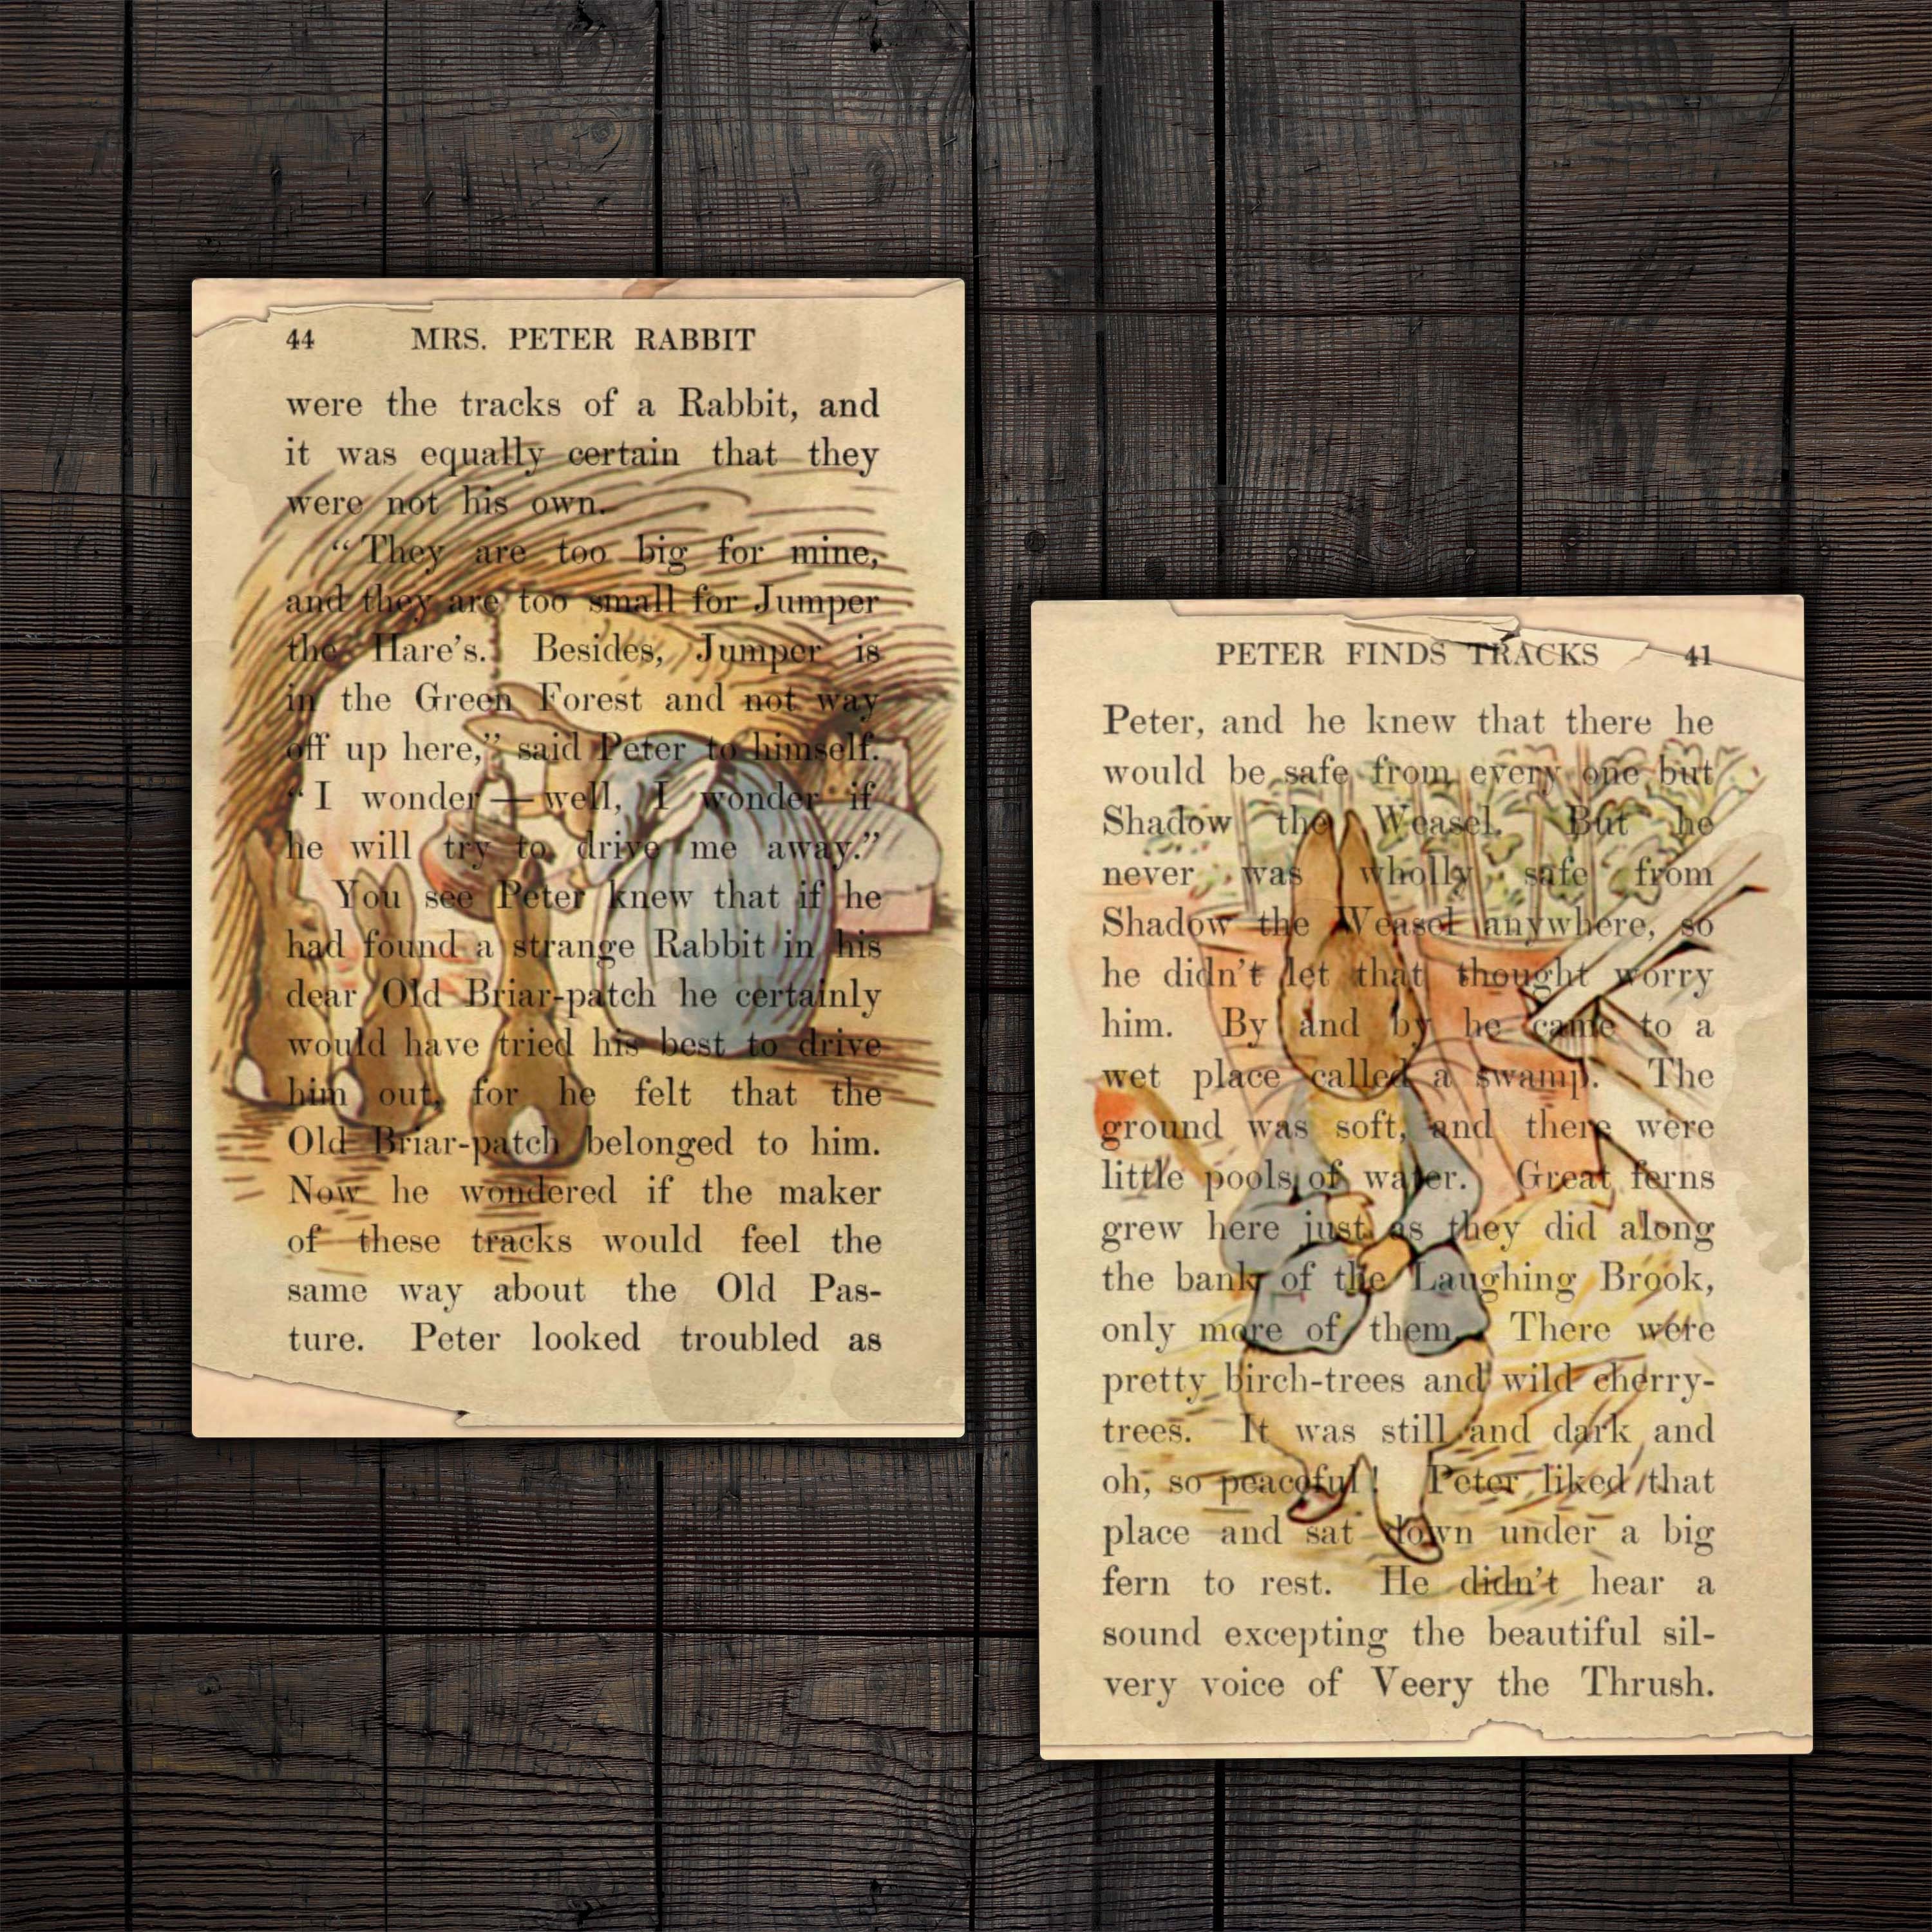 44 MRS. PETER RABBIT
were the tracks of a Rabbit, and
it was equally certain that they
were not his own.
“They are too big for mine,
and they are too small for Jumper
the Hare’s. Besides, Jumper is
in the Green Forest and not way
off up here,” said Peter to himself.
“I wonder — well, I wonder if
he will try to drive me away.”
You see Peter knew that if he
had found a strange Rabbit in his
dear Old Briar-patch he certainly
would have tried his best to drive
him out, for he felt that the
Old Briar-patch belonged to him.
Now he wondered if the maker
of these tracks would feel the
same way about the Old Pas-
ture. Peter looked troubled as
PETER FINDS TRACKS 41
Peter, and he knew that there he
would be safe from every one but
Shadow the Weasel. But he
never was wholly safe from
Shadow the Weasel anywhere, so
he didn’t let that thought worry
him. By and by he came to a
wet place called a swamp. The
ground was soft, and there were
little pools of water. Great ferns
grew here just as they did along
the bank of the Laughing Brook,
only more of them. There were
pretty birch-trees and wild cherry-
trees. It was still and dark and
oh, so peaceful! Peter liked that
place and sat down under a big
fern to rest. He didn’t hear a
sound excepting the beautiful sil-
very voice of Veery the Thrush.